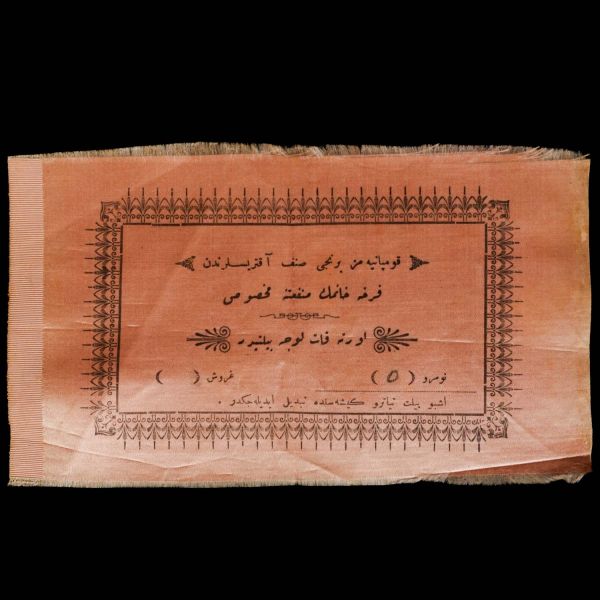 قومپانیه‌من برنجی صنف آقتریسلرندن
قرخه خانمك منفعتنه مخصوص
اورته قات لوجه بیلتیدر
نومرو ( ٥ ) غروش ( )
اشبو بیلت تیاترو كیشه‌سنده تبدیل ایدیله‌جكدر .